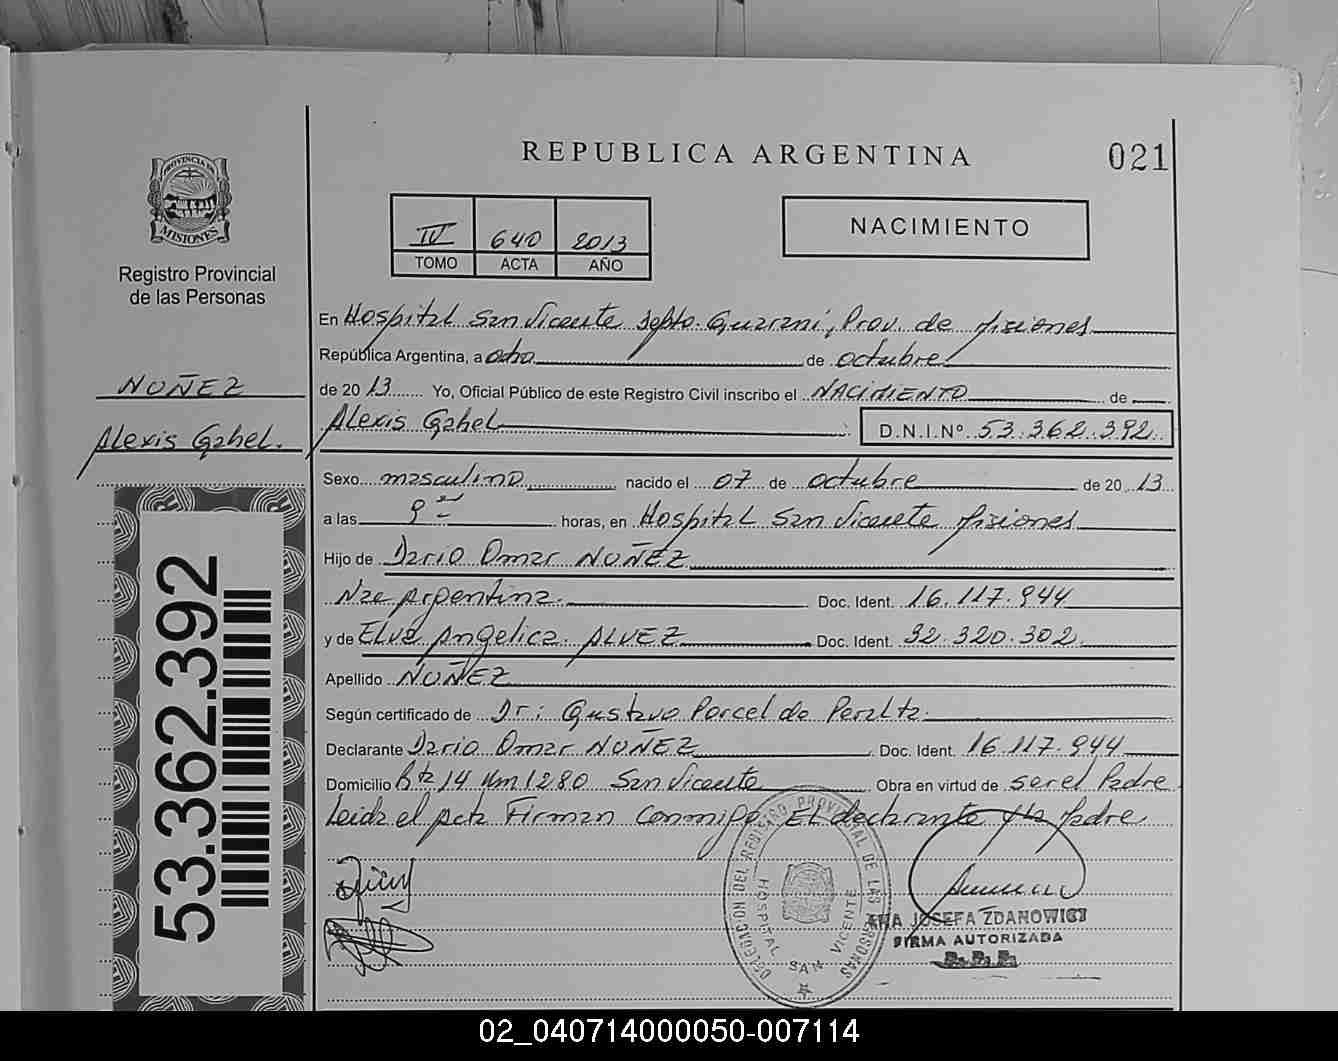 REPUBLICA ARGENTINA
021
PROVINCIA DE
MISIONES
Registro Provincial
de las Personas
IV 640 2013
TOMO ACTA AÑO
NACIMIENTO
En Hospital San Vicente Depto. Guarani, Prov. de Misiones
República Argentina, a ocho de octubre
de 20 13 Yo, Oficial Público de este Registro Civil inscribo el NACIMIENTO de
NUÑEZ
Alexis Gabel.
Alexis Gabel D.N.I.Nº 53.362.392
Sexo masculino nacido el 07 de octubre de 20 13
a las horas, en Hospital San Vicente Misiones
Hijo de Dario Omar NUÑEZ
Nac Argentina. Doc. Ident. 16.117.944
y de Elva Angelica ALVEZ Doc. Ident. 32.320.302
Apellido NUÑEZ
Según certificado de Dr: Gustavo Porcel de Peralta
Declarante Dario Omar NUÑEZ Doc. Ident. 16.117.944
Domicilio Rta 14 Km 1280 San Vicente Obra en virtud de ser el Padre
Leida el Acta Firman Conmigo El declarante y la Madre
53.362.392
DELEGACION DEL REGISTRO PROVINCIAL DE LAS PERSONAS
HOSPITAL SAN VICENTE
ANA JOSEFA ZDANOWICZ
FIRMA AUTORIZADA
02_040714000050-007114